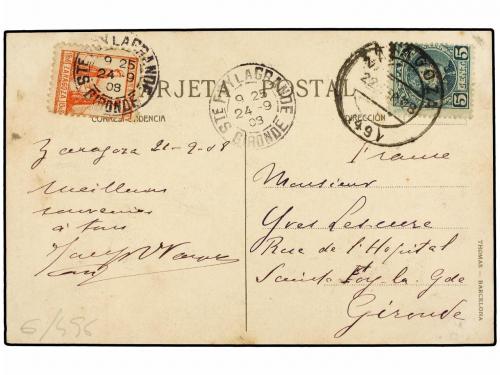 STE FOY LAGRANDE
9 25
24 -9
08
GIRONDE
STE FOY LAGRANDE
9 25
24 -9
08
GIRONDE
ZARAGOZA
22
5 CENTS 5
TARJETA POSTAL
CORRESPONDENCIA
DIRECCIÓN
Zaragoza 21-9-08
Meilleurs
souvenirs
à tous
France
Monsieur
Yves Lescure
Rue de l'Hopital
Sainte Foy la Gde
Gironde
THOMAS - BARCELONA
6/496